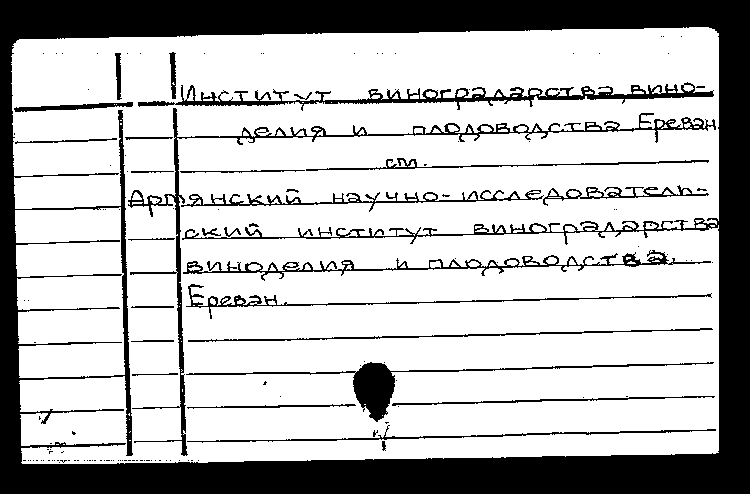 Институт виноградарства, вино-
делия и плодоводства Ереван
см.
Армянский научно-исследователь-
ский институт виноградарства
виноделия и плодоводства.
Ереван.